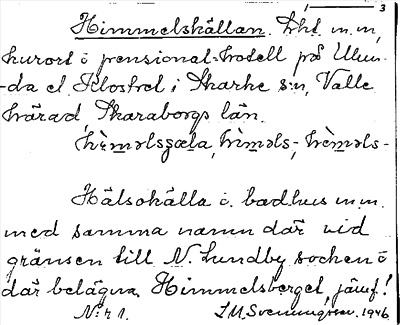 1 3
Himmelskällan. trkt m.m,
kurort o pensionat-hotell på Ulun-
-da el. Klostret i Skarke s:n, Valle
härad, Skaraborgs län.
hìməlsʒæla, hìməls-, hèməls-
Hälsokälla o. badhus m.m.
med samma namn där vid
gränsen till N. Lundby socken o
där belägna. Himmelsberget, jämf!
N:r 1. J.M. Svenungsson. 1946.